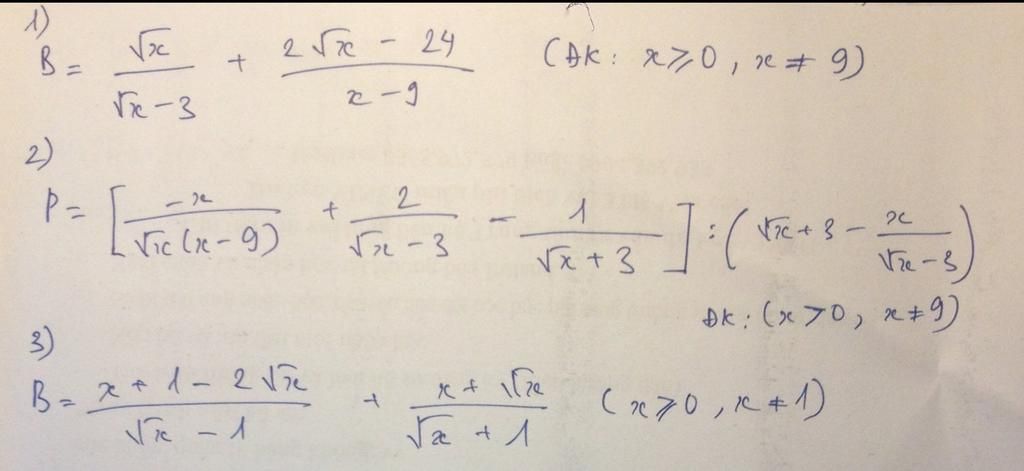 1)
B = √x / (√x - 3) + (2√x - 24) / (x - 9) (ĐK: x ⩾ 0, x ≠ 9)
2)
P = [ -x / (√x (x - 9)) + 2 / (√x - 3) - 1 / (√x + 3) ] : ( √x + 3 - x / (√x - 3) )
ĐK: (x > 0, x ≠ 9)
3)
B = (x + 1 - 2√x) / (√x - 1) + (x + √x) / (√x + 1) (x ⩾ 0, x ≠ 1)